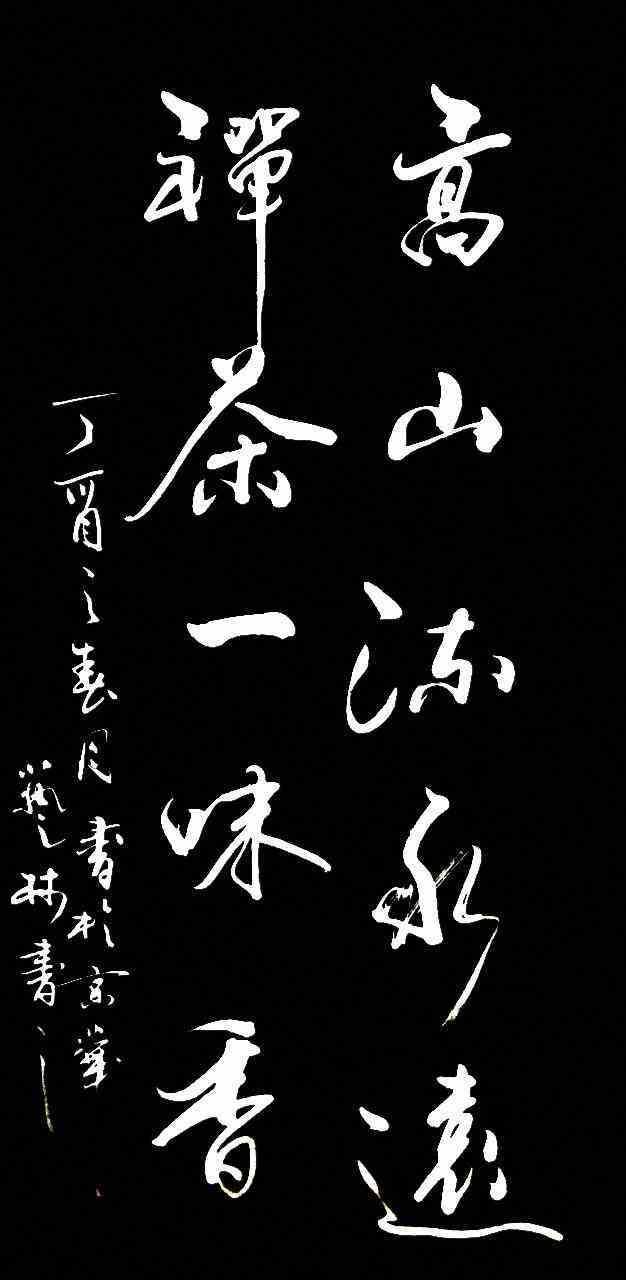 高山流水遠
禪茶一味香
丁酉之春月書於京華
藝林書